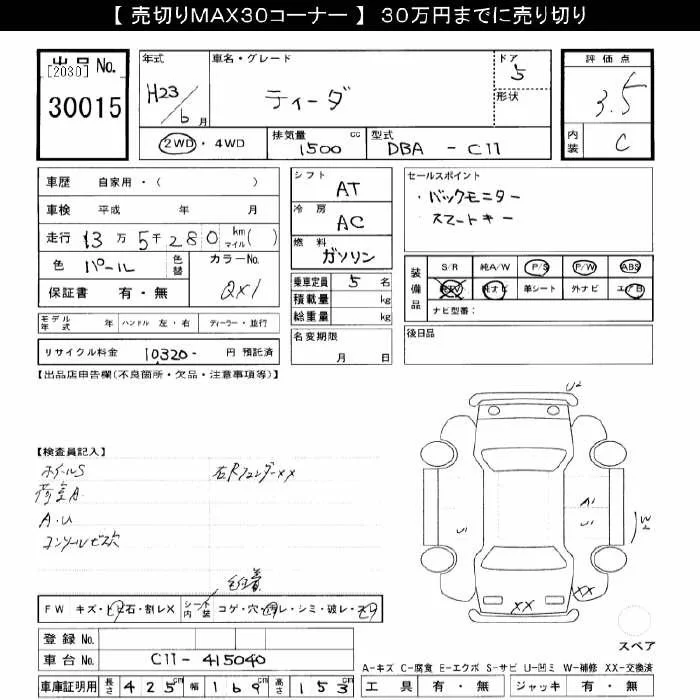 【 売切りMAX30コーナー 】 30万円までに売り切り
出品 No.
[2030]
30015
年式
H23/6月
車名・グレード
ティーダ
ドア
5
形状
評価点
3.5
内装
C
2WD・4WD
排気量
1500 cc
型式
DBA - C11
車歴 自家用・( )
車検 平成 年 月
走行 13万5千280 km マイル ( )
色 パール 色替 カラーNo.
保証書 有・無 QX1
シフト
AT
冷房
AC
燃料
ガソリン
乗車定員 5 名
積載量 kg
総重量 kg
セールスポイント
・バックモニター
・スマートキー
装備品
S/R 純A/W P/S P/W ABS
純TV 純ナビ 革シート 外ナビ エアB
ナビ型番:
モデル年式 年 ハンドル 左・右 ディーラー・並行
リサイクル料金 10320- 円 預託済
名変期限
月 日
後日品
【出品店申告欄(不良箇所・欠品・注意事項等)】
【検査員記入】
ホイールS 右Rフェンダーxx
荷室A
A.U
コンソールビス欠
U2
A1
U1 U1 W2
XX XX
FW キズ・ヒビ石・割レX シート内装 コゲ・穴・汚レ・シミ・破レ・スレ
スペア
登録 No.
車台 No. C11-415040
車庫証明用 長さ 425 cm 幅 169 cm 高さ 153 cm
A-キズ C-腐食 E-エクボ S-サビ U-凹ミ W-補修 XX-交換済
工具 有・無 ジャッキ 有・無